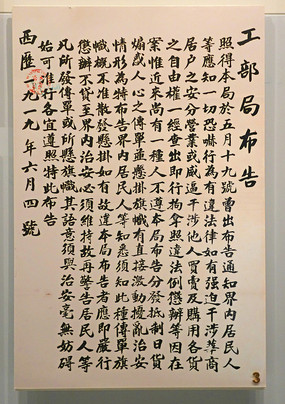 工部局布告
照得本局於五月十九號曾出布告通知界内居民人
等應知一切恐嚇行為有違法律如有强迫干涉華商
居户之安分營業或威逼干涉他人買賣及購用各貨
之自由權一經查出即行拘拿照違法例懲辦等因在
案惟近來尚有一種人不遵本局布告分發抵制日貨
煽惑人心之傳單並懸掛旗幟有直接激動擾亂治安
情形為特布告界内居民人等知悉須知此種傳單旗
幟概不准散發懸掛如有故違本局布告者應即嚴行
懲辦不貸至界内治安必須維持故再警告居民人等
凡所發傳單或所懸旗幟其語意須與治安毫無妨碍
始可准行各宜遵照特此布告
西歷一九一九年六月四號
3